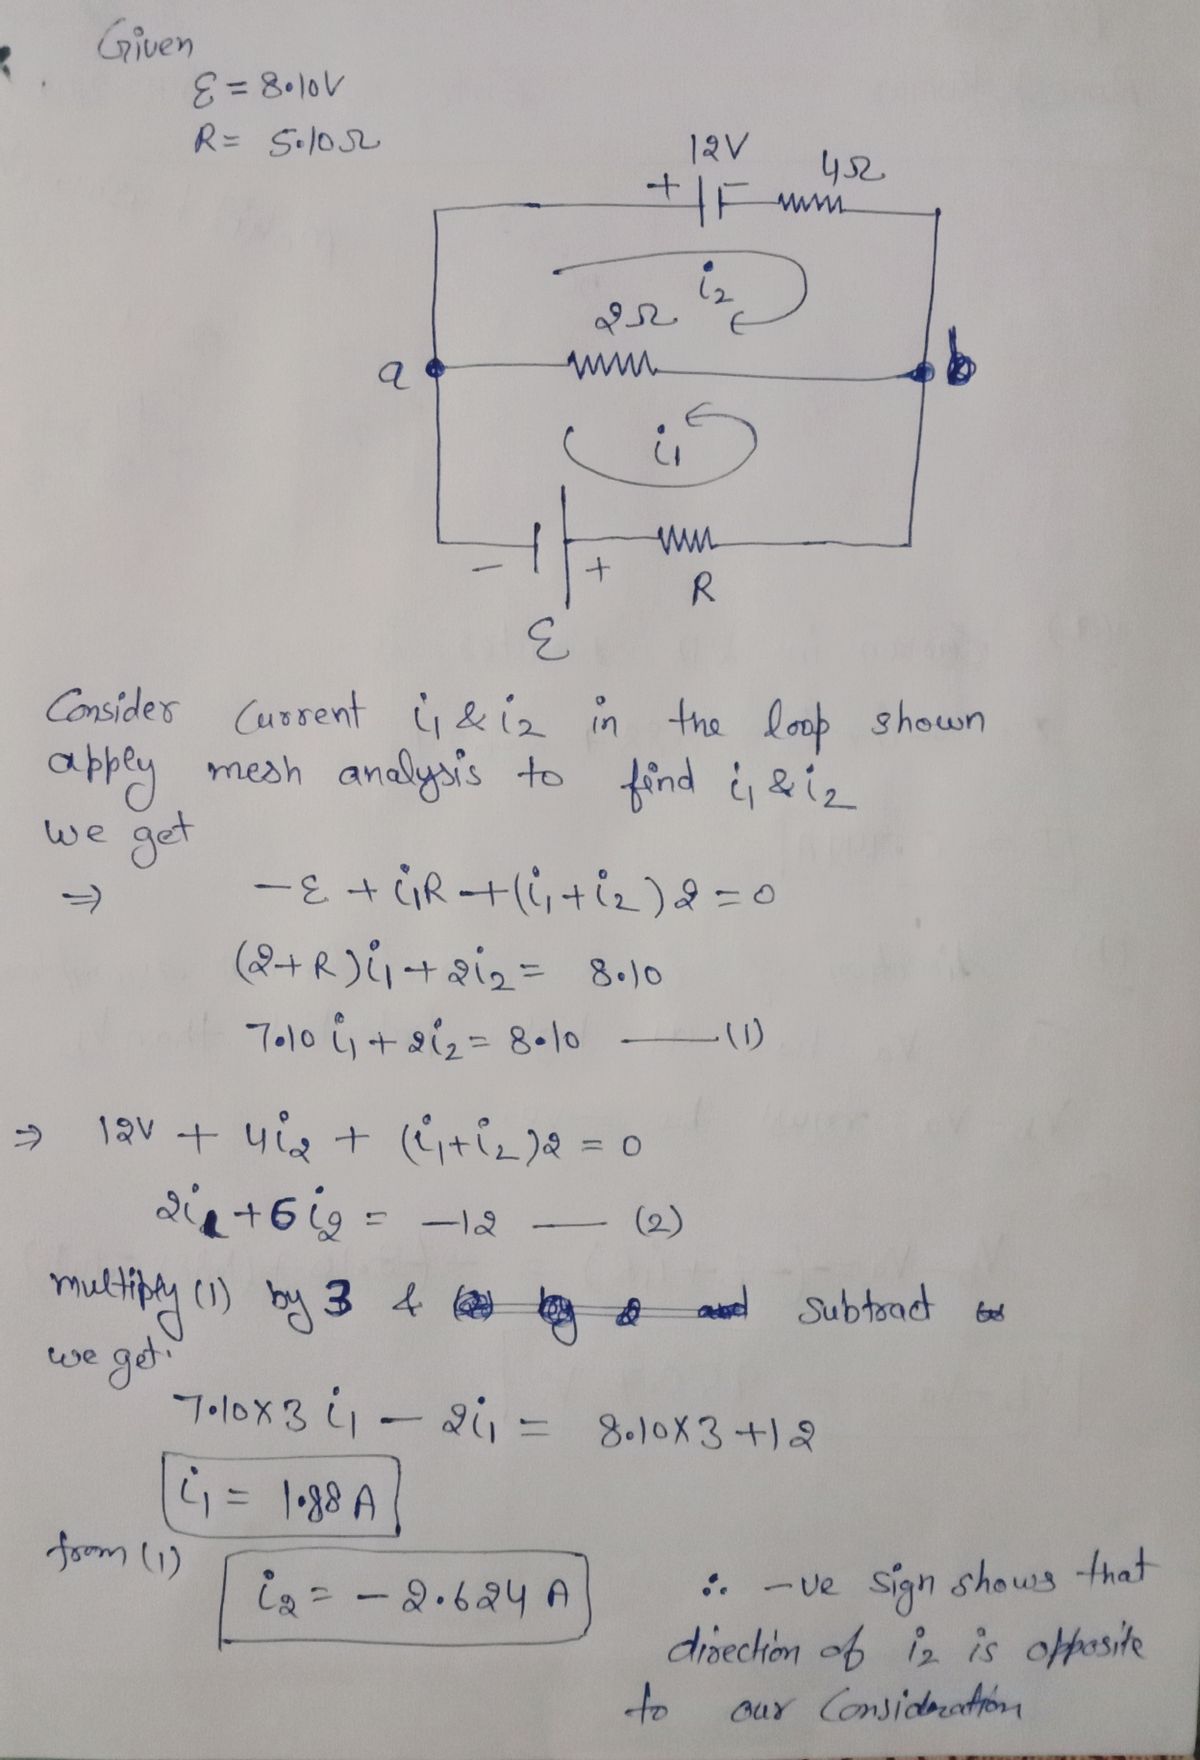 Given
ε = 8.10V
R = 5.10Ω
12V
4Ω
+ −
i₂
2Ω
a b
i₁
− +
R
ε
Consider Current i₁ & i₂ in the loop shown
apply mesh analysis to find i₁ & i₂
we get
⇒ −ε + i₁R + (i₁+i₂)2 = 0
(2+R)i₁ + 2i₂ = 8.10
7.10 i₁ + 2i₂ = 8.10 —— (1)
⇒ 12V + 4i₂ + (i₁+i₂)2 = 0
2i₁ + 6i₂ = −12 —— (2)
multiply (1) by 3 & subtract
we get.
7.10×3 i₁ − 2i₁ = 8.10×3 +12
i₁ = 1.88 A
from (1)
i₂ = −2.624 A
∴ −ve sign shows that
direction of i₂ is opposite
to our Consideration